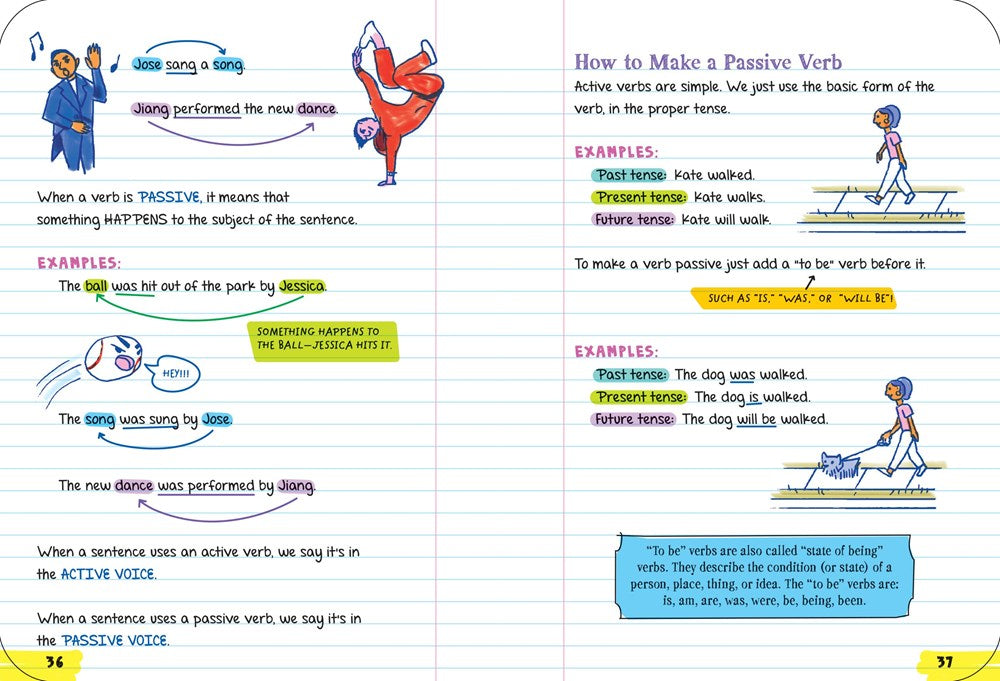 Jose sang a song.
Jiang performed the new dance.
When a verb is PASSIVE, it means that
something HAPPENS to the subject of the sentence.
EXAMPLES:
The ball was hit out of the park by Jessica.
SOMETHING HAPPENS TO
THE BALL—JESSICA HITS IT.
HEY!!!
The song was sung by Jose.
The new dance was performed by Jiang.
When a sentence uses an active verb, we say it's in
the ACTIVE VOICE.
When a sentence uses a passive verb, we say it's in
the PASSIVE VOICE.
36
How to Make a Passive Verb
Active verbs are simple. We just use the basic form of the
verb, in the proper tense.
EXAMPLES:
Past tense: Kate walked.
Present tense: Kate walks.
Future tense: Kate will walk.
To make a verb passive just add a "to be" verb before it.
SUCH AS "IS," "WAS," OR "WILL BE"!
EXAMPLES:
Past tense: The dog was walked.
Present tense: The dog is walked.
Future tense: The dog will be walked.
"To be" verbs are also called "state of being"
verbs. They describe the condition (or state) of a
person, place, thing, or idea. The "to be" verbs are:
is, am, are, was, were, be, being, been.
37